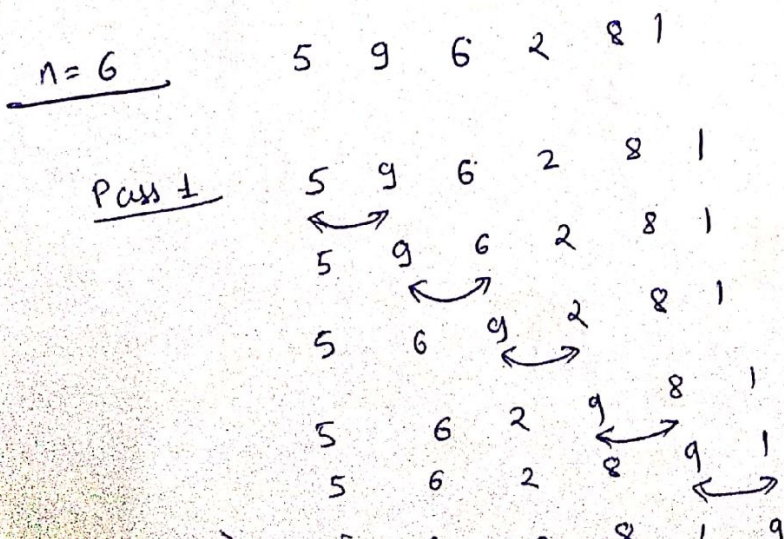 n = 6 5 9 6 2 8 1
Pass 1 5 9 6 2 8 1
5 9 6 2 8 1
5 6 9 2 8 1
5 6 2 9 8 1
5 6 2 8 9 1
8 1 9